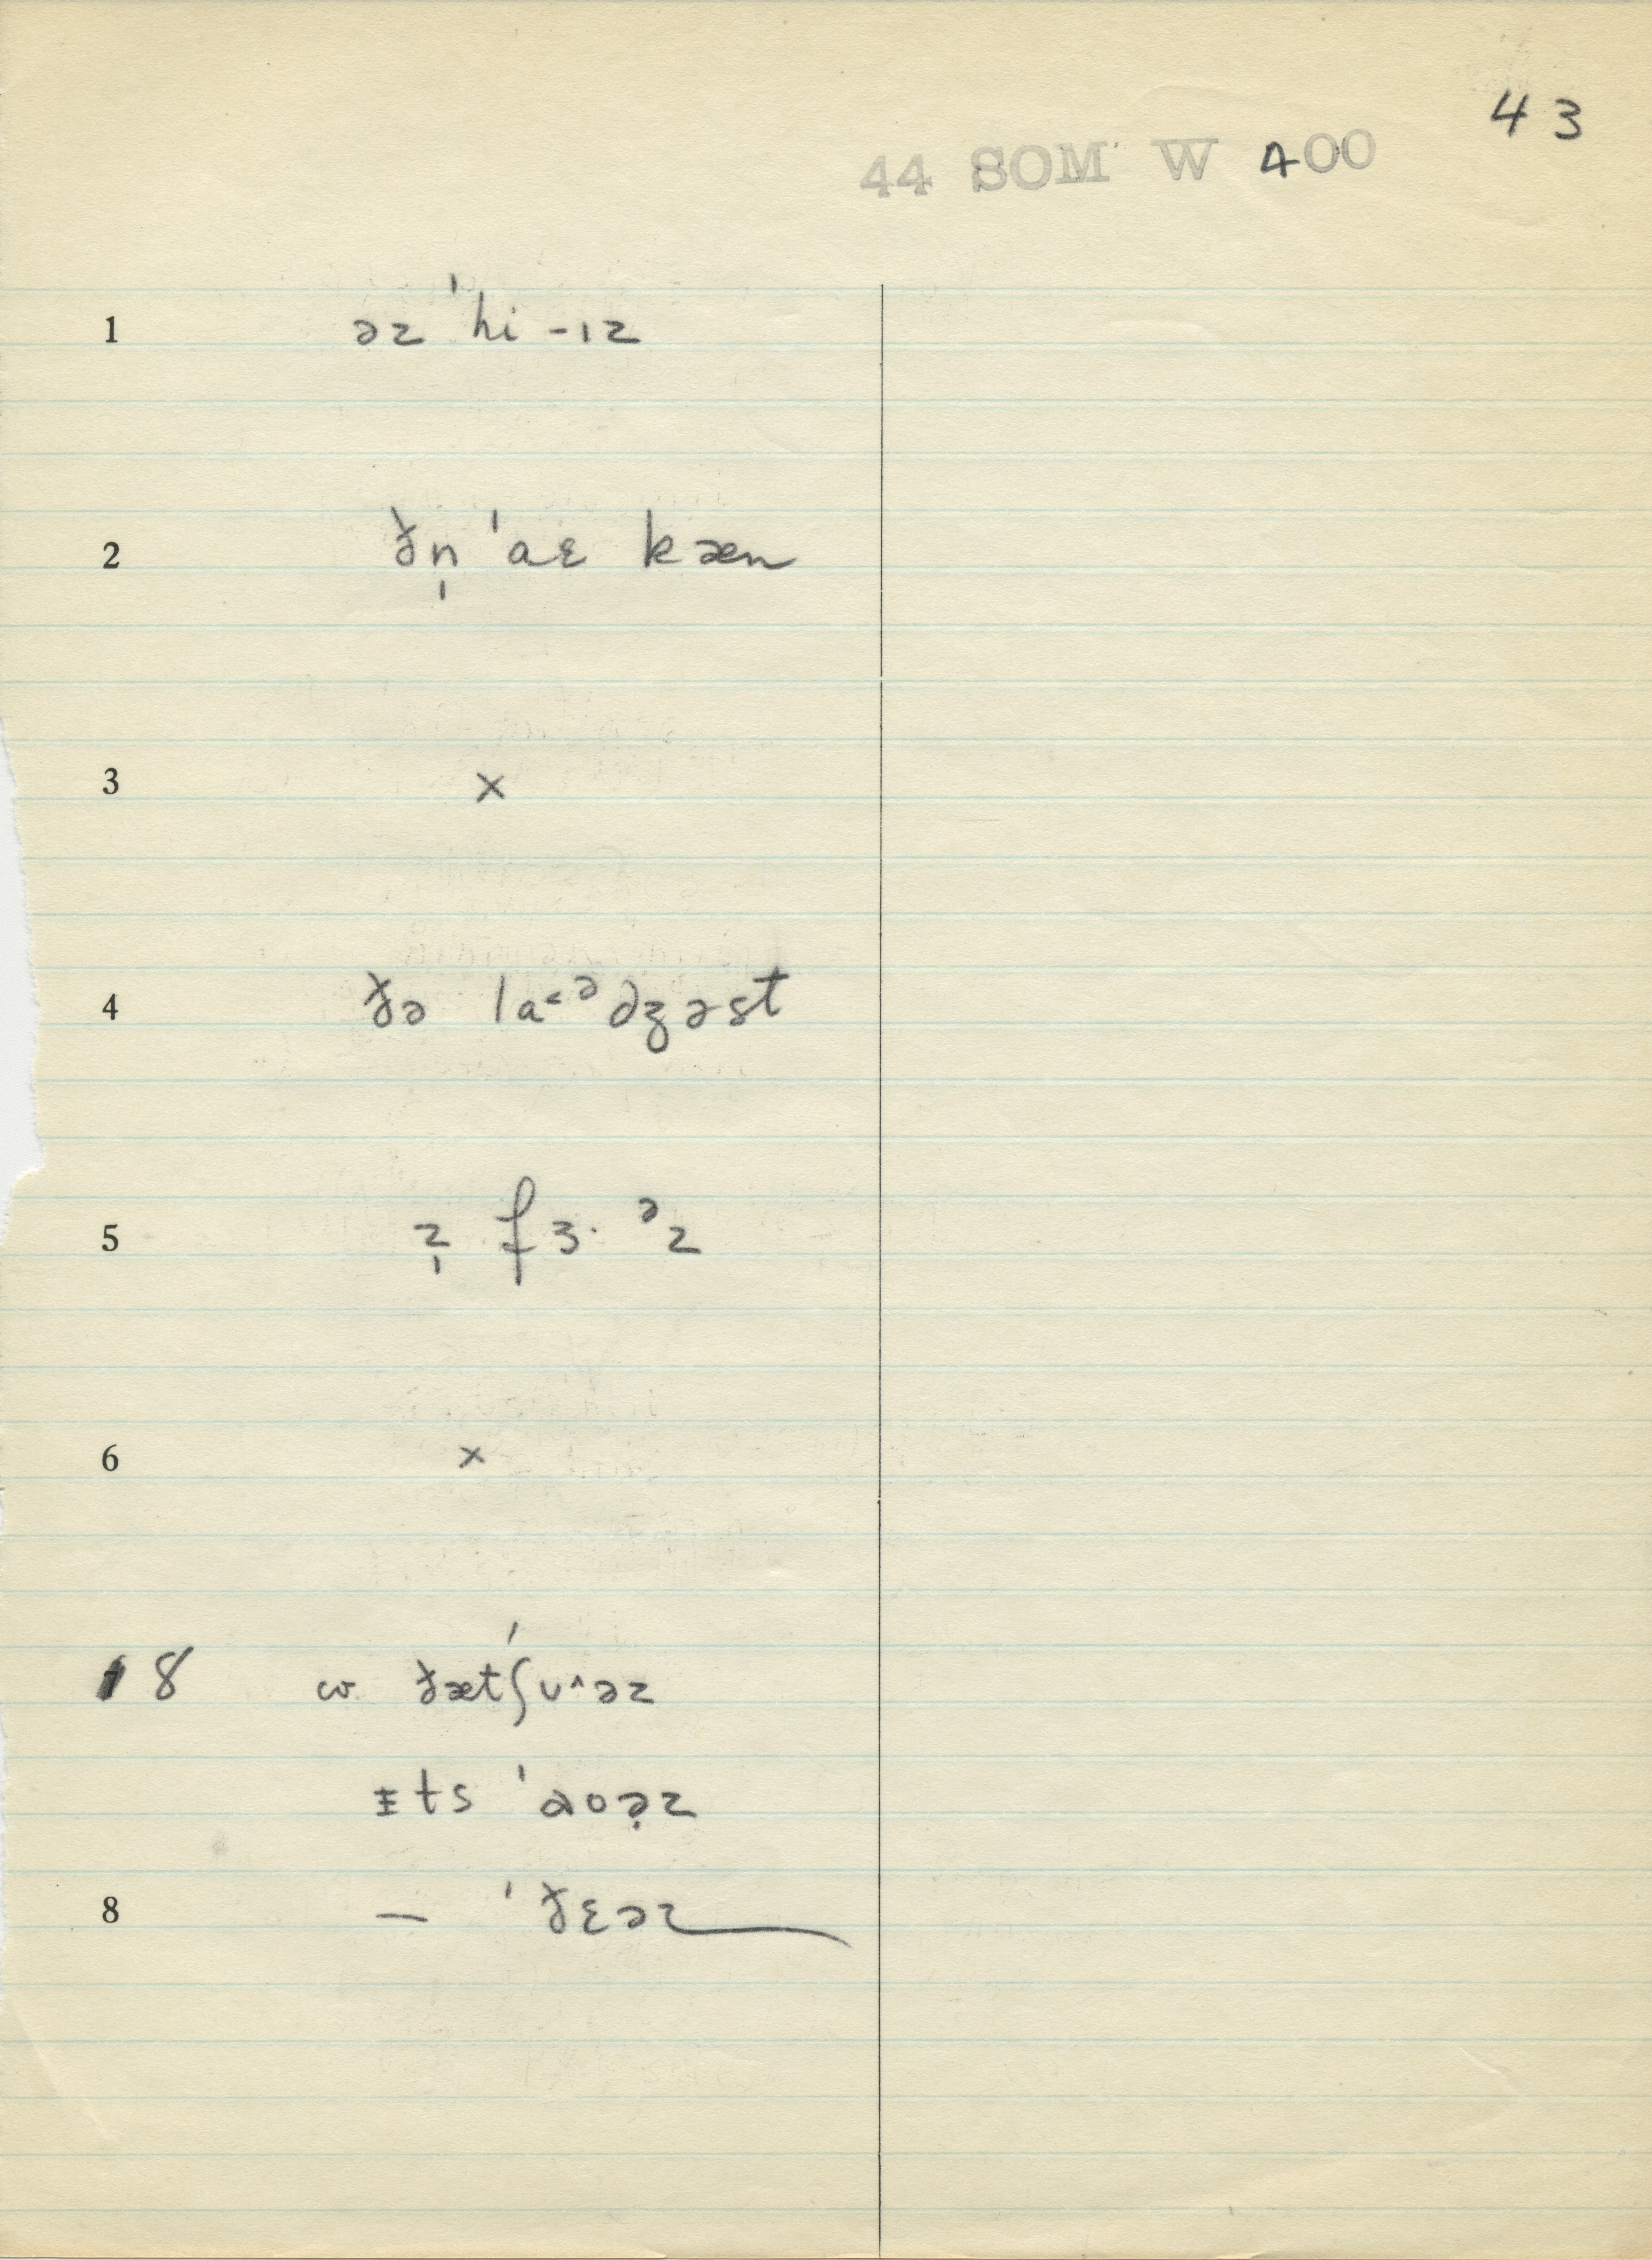 43
44 SOM W 400
1 əz ˈhi-ɪz
2 ðn̩ ˈaɛ kæn
3 ×
4 ðə la˂ᵊdʒəst
5 z̩ fɜ· ᵊz
6 ×
8 cv ðætʃʊ^əz
ɪts ˈɑoə̣z
8 — ˈðɛəz